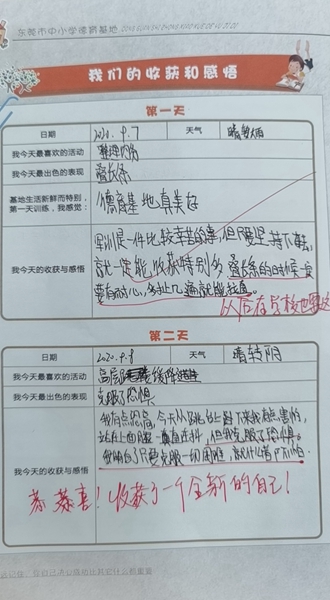 东莞市中小学德育基地
我们的收获和感悟
第一天
日期 2020.9.7 天气 晴转
我今天最喜欢的活动 整理内务
我今天最出色的表现 叠衣
基地生活新鲜而特别,
第一天训练,我感觉: 德育基地真美好
军训是一件比较辛苦的事,但只要坚持下去,
就一定能收获特别多
我今天的收获与感悟
要有耐心,多
以后在学校也要
第二天
日期 2020.9.8 天气 晴转阴
我今天最喜欢的活动 高层 缓降
我今天最出色的表现 克服了恐惧
我有点恐高,今天从 上 下来我有点害怕,
站在上面腿一直在抖,但我克服了恐惧。
我明白了只要克服一切困难,就什么都不怕。
我今天的收获与感悟
恭恭喜!收获了一个全新的自己!